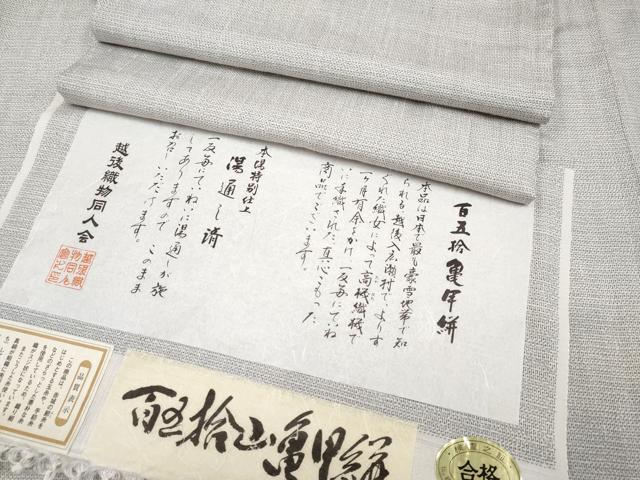 百五拾亀甲絣
本品は日本で最も豪雪地帯で知
られる越後入広瀬村で、よりす
ぐれた織女によって高機織機で
一ヶ月有余をかけ一反毎にていね
いに手織された真心こもった
商品でございます。
本場特別仕上
湯通し済
一反毎にていねいに湯通しが施
してありますので、このまま
お召しいただけます。
越後織物同人会
百五拾山亀甲絣
品質表示
この商品は、
合格